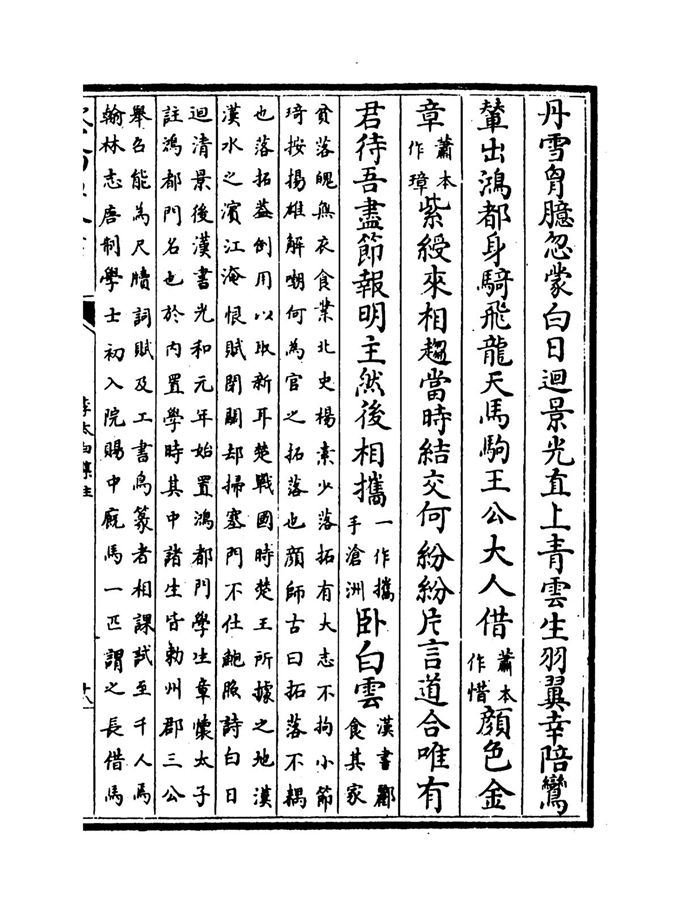 丹雪胷臆忽蒙白日迴景光直上青雲生羽翼幸陪鸞
輦出鴻都身騎飛龍天馬駒王公大人借蕭本作惜顔色金
章蕭本作璋紫綬來相趨當時結交何紛紛片言道合唯有
君待吾盡節報明主然後相攜一作攜手滄洲卧白雲漢書酈食其家
貧落魄無衣食業北史楊素少落拓有大志不拘小節
琦按揚雄解嘲何為官之拓落也顔師古曰拓落不耦
也落拓葢倒用以取新耳楚戰國時楚王所據之地漢
漢水之濱江淹恨賦閉關却掃塞門不仕鮑照詩白日
迴清景後漢書光和元年始置鴻都門學生章懷太子
註鴻都門名也於内置學時其中諸生皆勅州郡三公
舉召能為尺牘詞賦及工書鳥篆者相課試至千人焉
翰林志唐制學士初入院賜中廐馬一匹謂之長借馬
李太白集注
十八